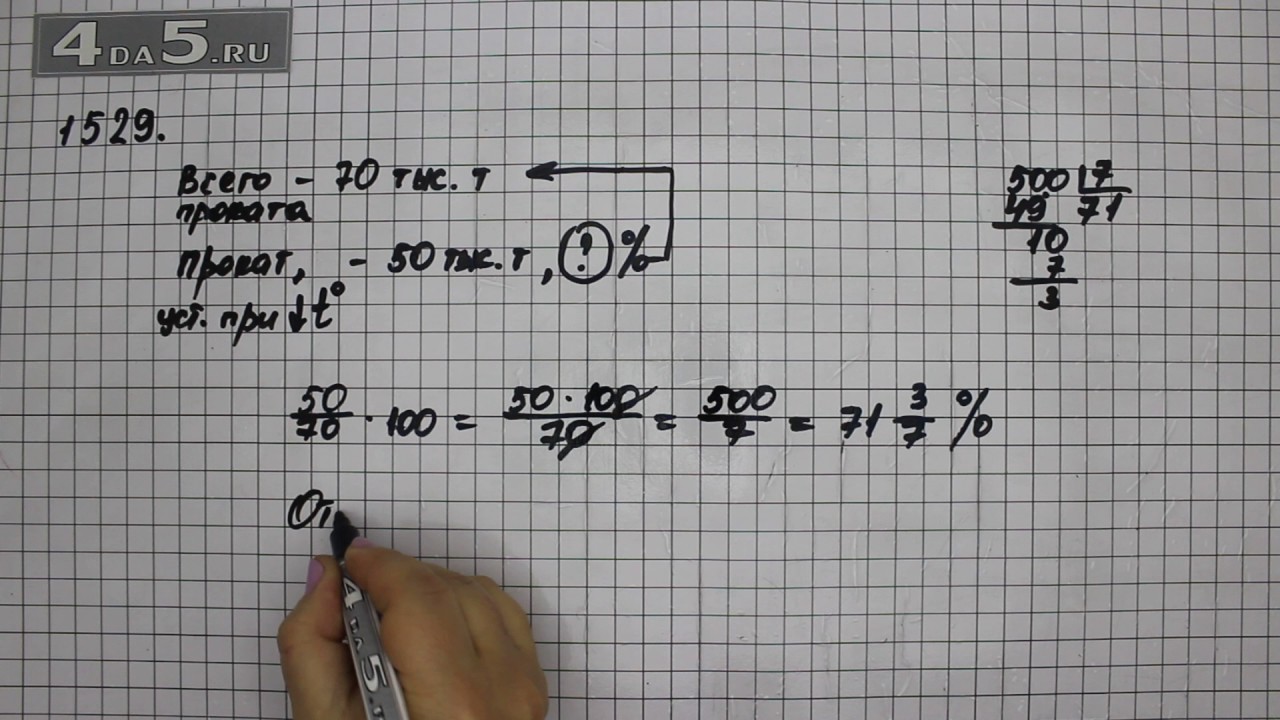 4DA5.RU
1529.
Всего – 70 тыс. т
проката
Прокат, – 50 тыс. т, ? %
уст. при ↓ t°
500 | 7
49 71
10
7
3
50/70 · 100 = 50 · 100/70 = 500/7 = 71 3/7 %
От
4 DA 5.